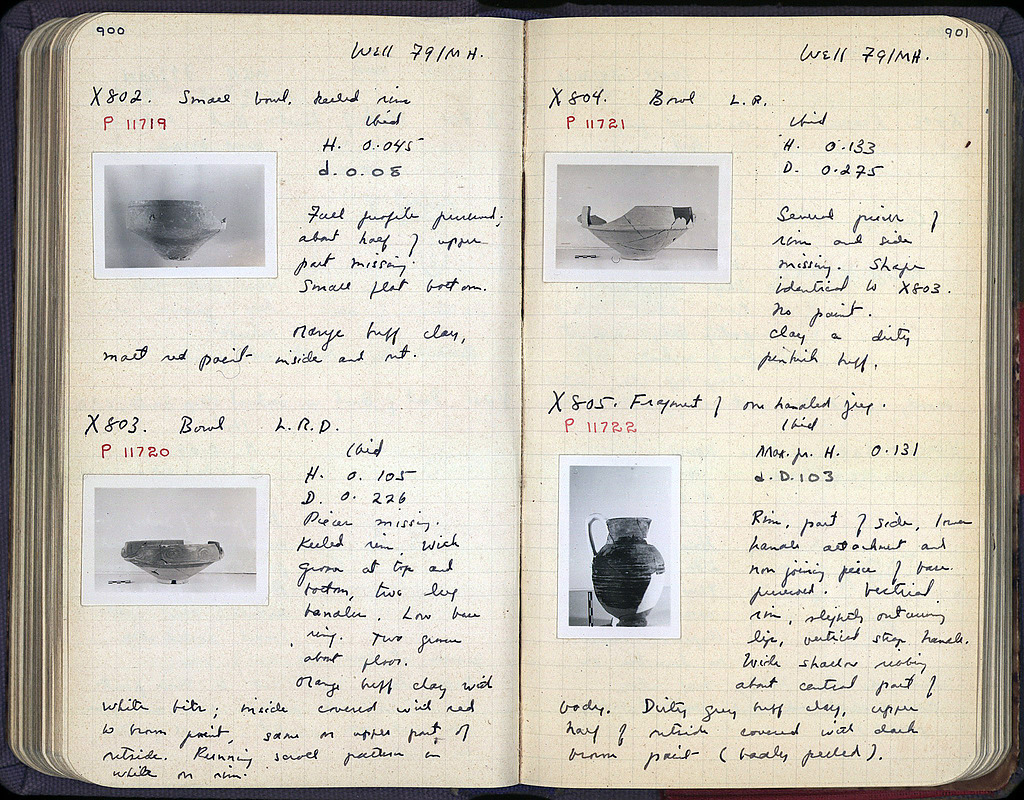 900
Well 79/MH.
X802. Small bowl, keeled rim
P 11719
Ibid
H. 0.045
d. 0.08
Full profile preserved;
about half of upper
part missing.
Small flat bottom.
Orange buff clay,
matt red paint inside and out.
X803. Bowl L.R.D.
P 11720
Ibid
H. 0.105
D. 0.226
Pieces missing.
Keeled rim, with
groove at top and
bottom, two lug
handles. Low base
ring. Two grooves
about floor.
Orange buff clay with
white bits; inside covered with red
to brown paint, same on upper part of
outside. Running scroll pattern in
white on rim.
901
Well 79/MH.
X804. Bowl L.R.
P 11721
Ibid
H. 0.133
D. 0.275
Several pieces of
rim and side
missing. Shape
identical to X803.
No paint.
Clay a dirty
pinkish buff.
X805. Fragment of one handled jug.
P 11722
Ibid
Max. pr. H. 0.131
d. D. 103
Rim, part of side, lower
handle attachment and
non joining piece of base
preserved. Vertical
rim, slightly outturning
lip, vertical strap handle.
Wide shallow ribbing
about central part of
body. Dirty grey buff clay, upper
half of outside covered with dark
brown paint (badly peeled).